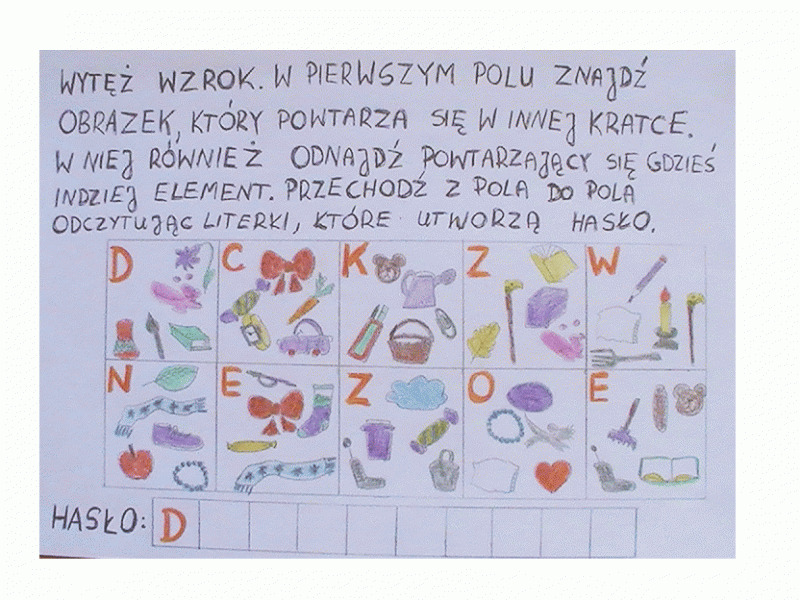 WYTĘŻ WZROK. W PIERWSZYM POLU ZNAJDŹ
OBRAZEK, KTÓRY POWTARZA SIĘ W INNEJ KRATCE.
W NIEJ RÓWNIEŻ ODNAJDŹ POWTARZAJĄCY SIĘ GDZIEŚ
INDZIEJ ELEMENT. PRZECHODŹ Z POLA DO POLA
ODCZYTUJĄC LITERKI, KTÓRE UTWORZĄ HASŁO.
D C K Z W
N E Z O E
HASŁO: D